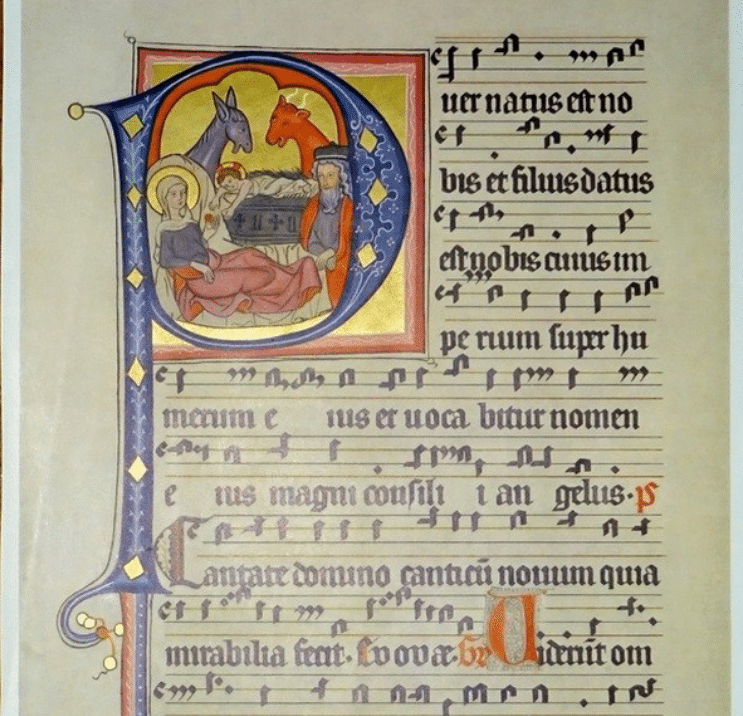 P
uer natus est no
bis et filius datus
est nobis cuius im
pe rium super hu
merum e ius et uoca bitur nomen
e ius magni consili i an gelus. ps
Cantate domino canticū nouum quia
mirabilia fecit. Euouae. Gr Uiderūt om